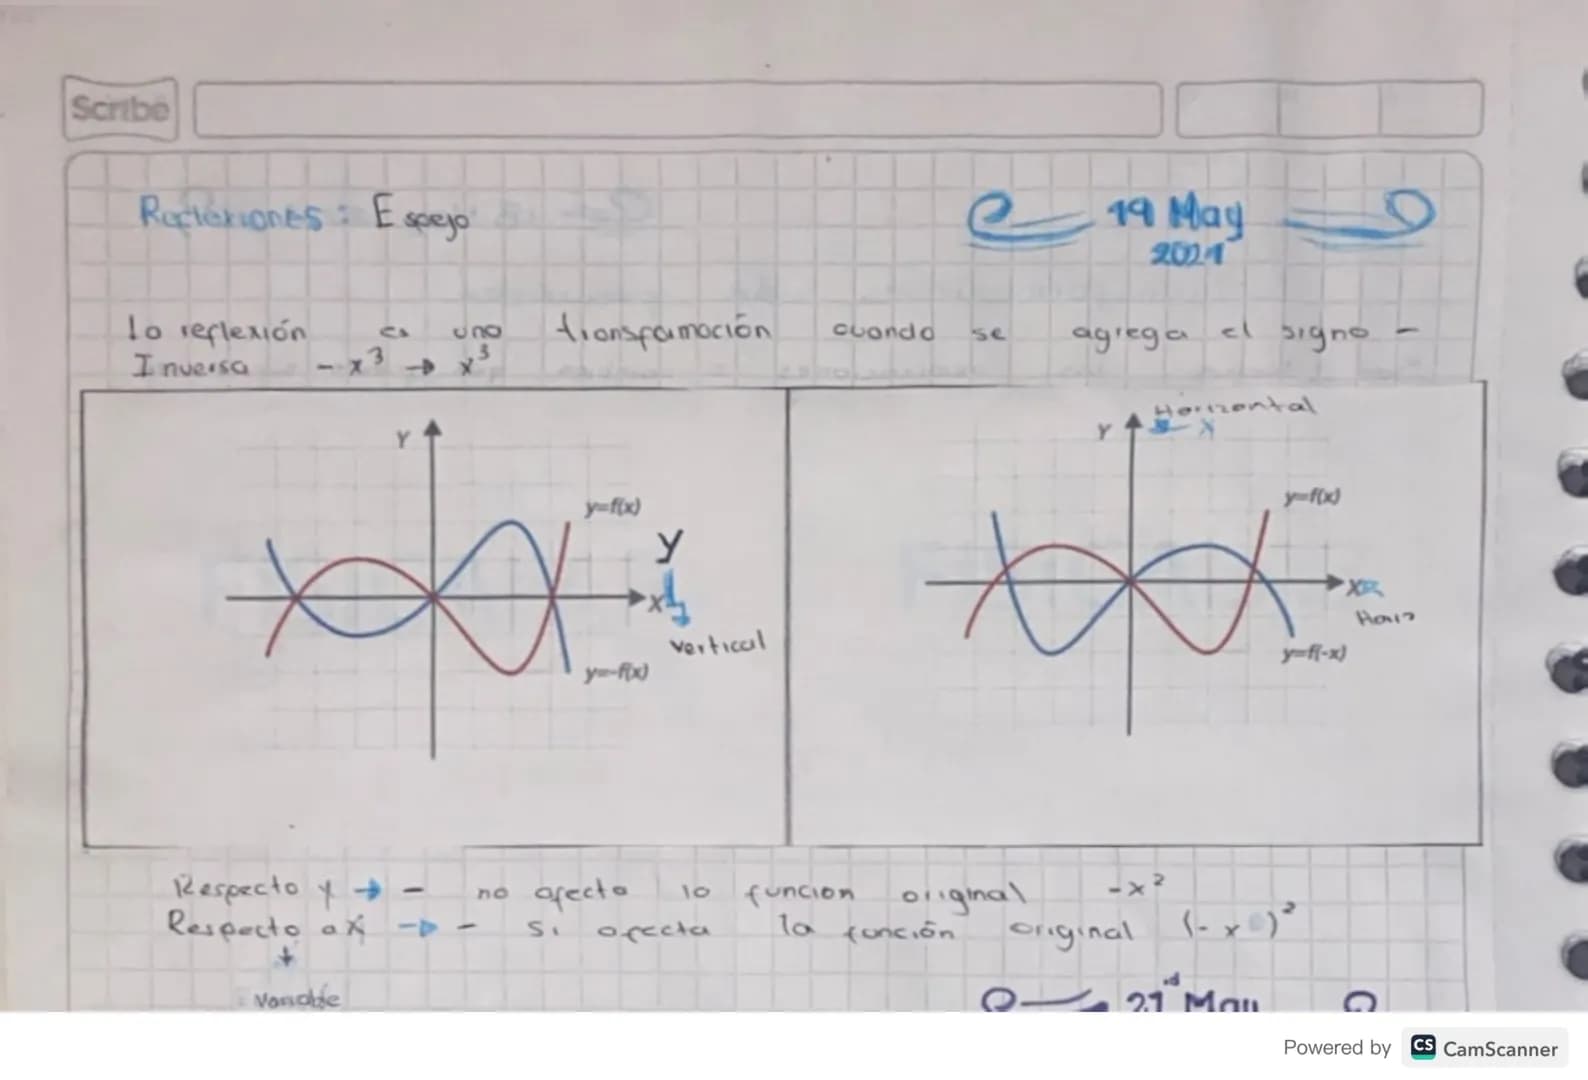 Scribe
Reflexiones: Espejo
19 May
2021
la reflexión es una transformación cuando se agrega el signo -
Inversa - x³ → x³
Y
y=f(x)
y
x
vertical
y=-f(x)
Horizontal
Y
x
y=f(x)
X
Horiz
y=f(-x)
Respecto y → - no afecta la funcion original -x²
Respecto a x → - si afecta la función original (-x)²
↓
Variable
21 May
Powered by CS CamScanner